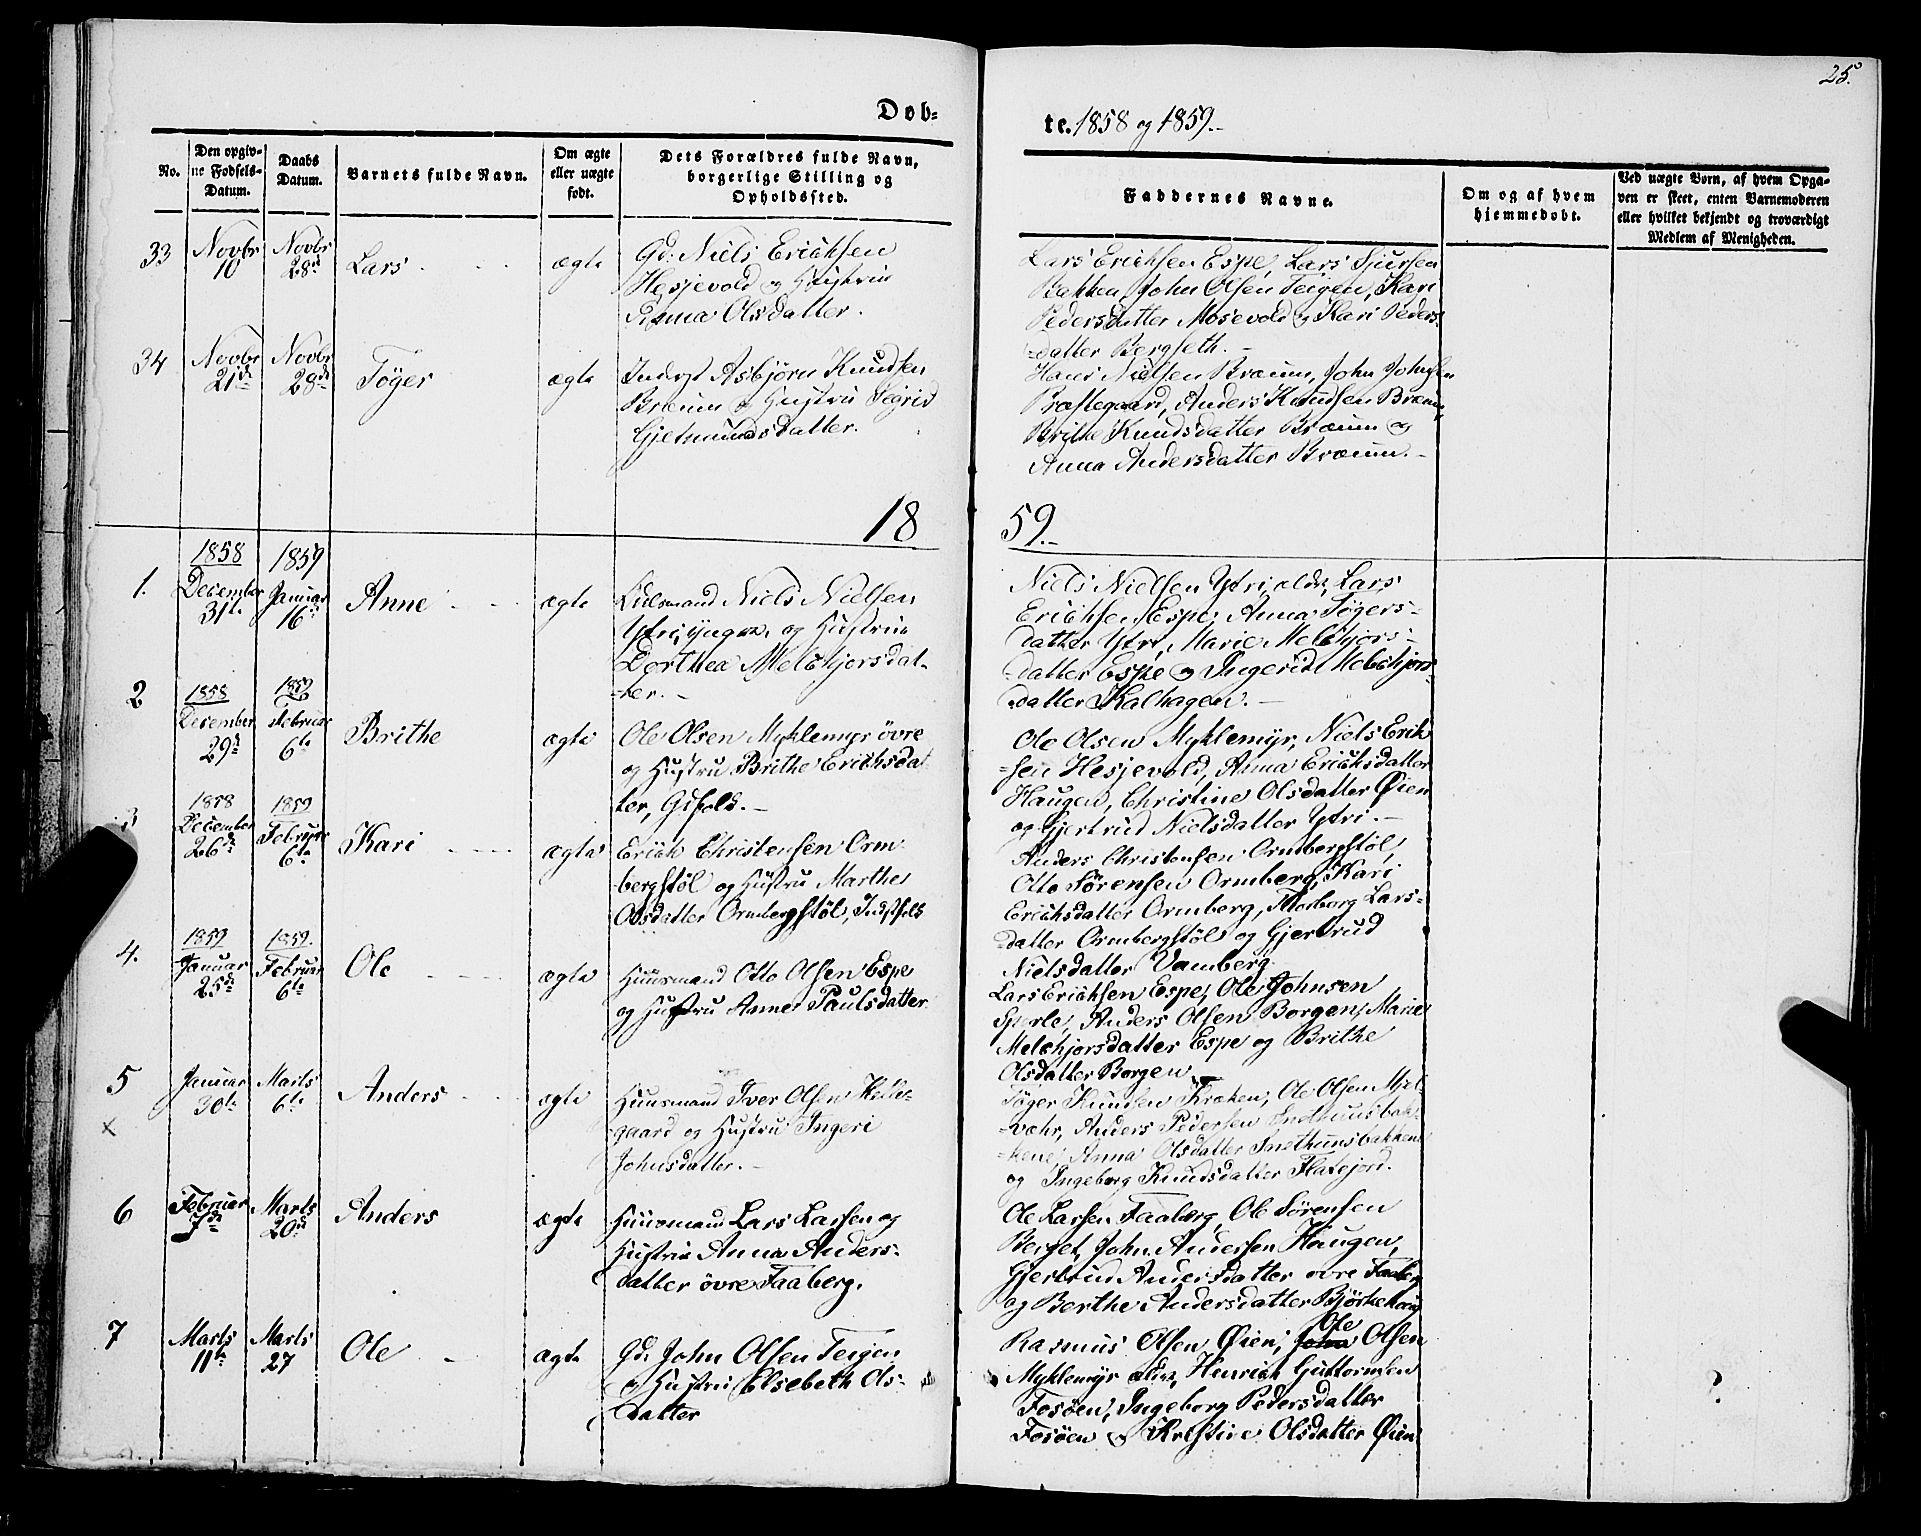 25.
Döb-
te. 1858 og 1859.-
No.
Den opgiv-
ne Födsels-
Datum.
Daabs
Datum.
Barnets fulde Navn.
Om ægte
eller uægte
födt.
Dets Forældres fulde Navn,
borgerlige Stilling og
Opholdssted.
Faddernes Navne.
Om og af hvem
hjemmedöbt.
Ved uægte Börn, af hvem Opga-
ven er skeet, enten Barnemoderen
eller hvilket bekjendt og troværdigt
Medlem af Menigheden.
33
Novbr
10
Novbr
28de
Lars
ægte
Gd. Niels Erichsen
Hesjevold og Hustrue
Anna Olsdatter.
Lars Erichsen Espe, Lars Sjursen
Bakken, John Olsen Teigen, Kari
Pedersdatter Mosevold og Kari Peders-
datter Bergseth. -
34
Novbr
21de
Novbr
28de
Töger
ægte
Inderst Asbjörn Knudsen
Bræum og Hustru Sigrid
Gjetmundsdatter.
Hans Nielsen Bræum, John Johnsen
Præstegaard, Anders Knudsen Bræum,
Brithe Knudsdatter Bræum og
Anna Andersdatter Bræum. -
18
59.-
1.
1858
December
31te
1859
Januar
16de
Anne
ægte
Niels Nielsen
Ytri, yngre, og Hustrue
Dorthea Melchjorsdat-
-ter. -
Niels Nielsen Ytri, ældr, Lars
Erichsen Espe, Anna Tögers-
datter Ytri, Marie Melchjors-
-datter Espe og Ingerid Melchjors-
datter Kalhagen. -
2
1858
December
29de
1859
Februar
6te
Brithe
ægte
Ole Olsen Myklemyr övre
og Hustru Brithe Erichsdat-
ter, Gifold. -
Ole Olsen Myklemyr, Niels Erik-
-sen Hesjevold, Anna Erichsdatter
Haugen, Christine Olsdatter Øien
og Gjertrud Nielsdatter Ytri. -
3
1858
December
26de
1859
Februar
6te
Kari
ægte
Erich Christensen Orm-
-bergstöl og Hustru Marthe
Olsdatter Ormbergstöl, Indstfolk
Anders Christensen Ormbergstöl,
Otto Sörensen Ormberg, Kari
Erichsdatter Ormberg, Thorborg Lars-
-datter Ormbergstöl og Gjertrud
Nielsdatter Vamberg.
4.
1859
Januar
25de
1859.
Februar
6te
Ole
ægte
Huusmand Otto Olsen Espe
og Hustru Anne Paulsdatter.
Lars Erichsen Espe, Ole Johnsen
Sperle, Anders Olsen Borgen, Marie
Melchjorsdatter Espe og Brithe
Olsdatter Borgen
5
x
Januar
30te
Marts
6te
Anders
ægte
Huusmand Iver Olsen Kelle-
gaard og Hustru Ingeri
Johnsdatter. -
Töger Knudsen Kroken, Ole Olsen Mjel-
-væhr, Anders Pedersen Snethunsbak-
-kene, Anna Olsdatter Snethunsbakkene
og Ingeborg Knudsdatter Flatejord.
6
Februar
7de
Marts
20de
Anders
ægte
Huusmand Lars Larsen og
Hustrue Anna Anders-
datter övre Faaberg.
Ole Larsen Faaberg, Ole Sörensen
Berget, John Andersen Haugen,
Gjertrud Andersdatter övre Faaberg
og Berthe Andersdatter Björkehaug
7
Marts
11te
Marts
27
Ole
ægte
Gd. John Olsen Teigen
og Hustrue Elsebeth Ols-
datter
Rasmus Olsen Øien, John Ole Olsen
Myklemyr ældre, Henrich Guttormsen
Fosöen, Ingeborg Pedersdatter
Fosöen og Kristine Olsdatter Øien
?